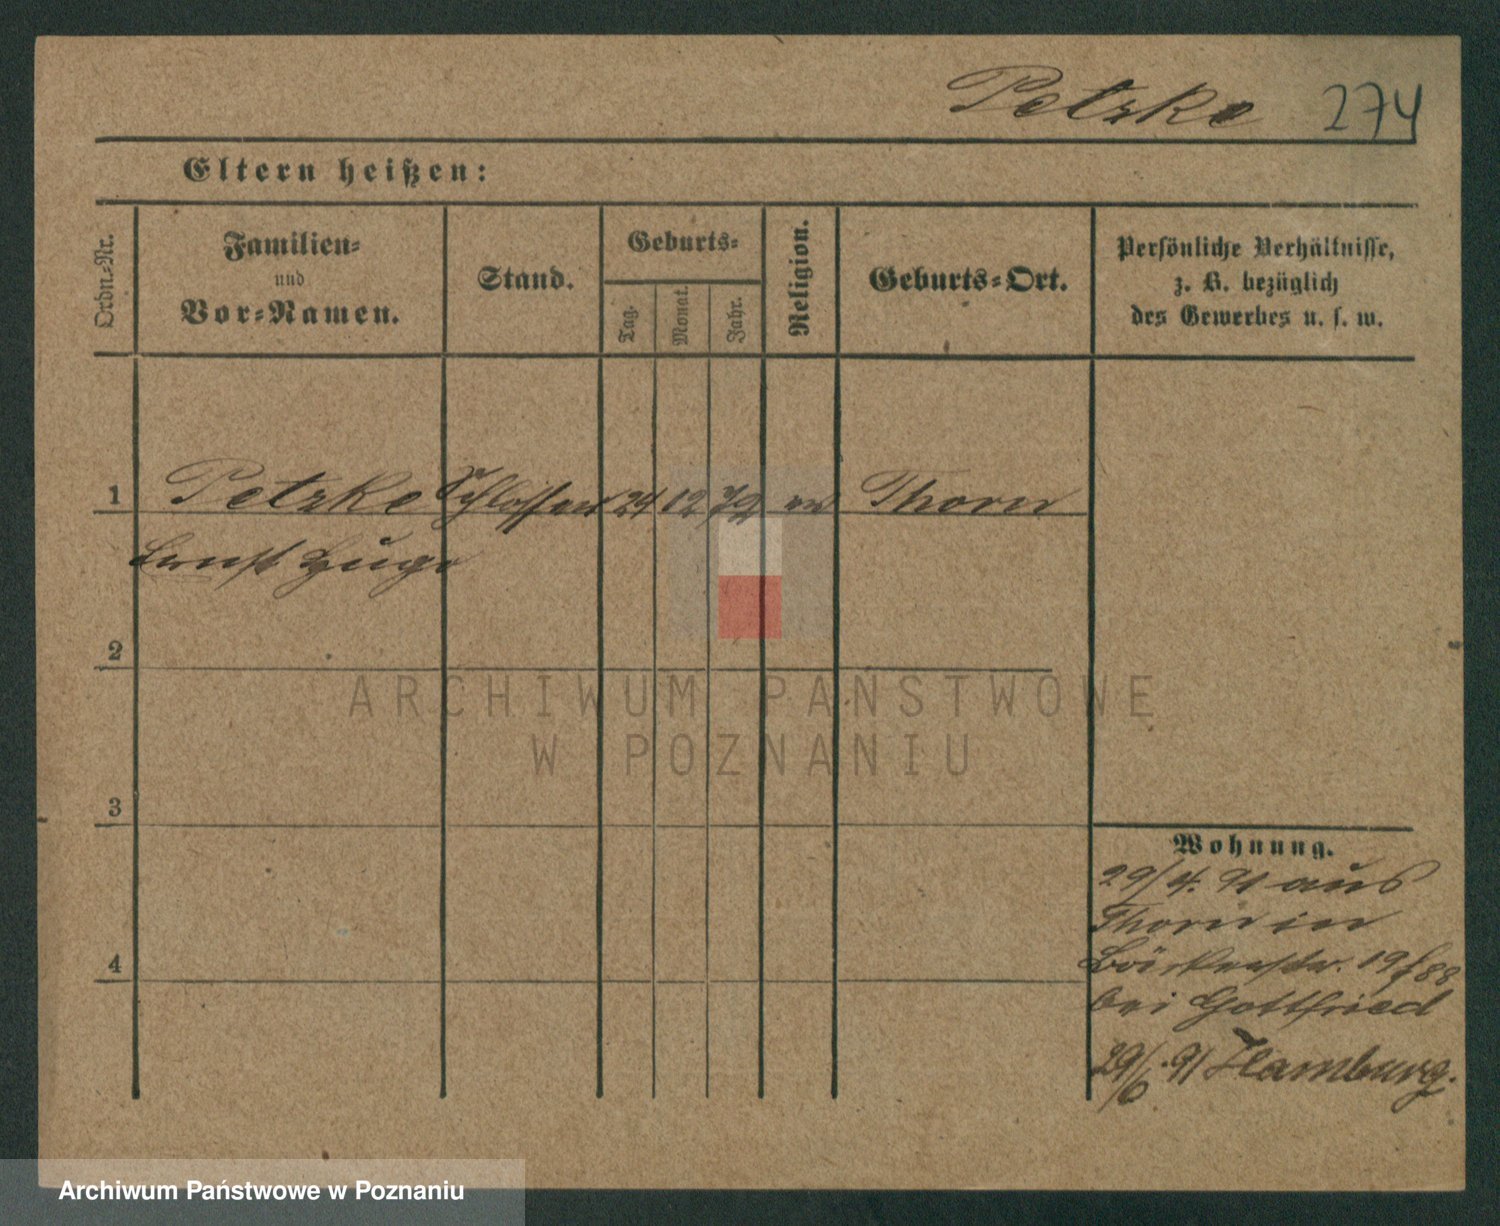 Petzke 274
Eltern heißen:
Ordn.-Nr.
Familien-
und
Vor-Namen.
Stand.
Geburts-
Tag.
Monat.
Jahr.
Religion.
Geburts-Ort.
Persönliche Verhältnisse,
z. B. bezüglich
des Gewerbes u. s. w.
1 Petzke Schlosser 24 12 72 ev Thorn
Ernst Hugo
2
3
4
Wohnung.
29/4. 91 aus
Thorn in
Bäckerstr. 19
bei Gottfried
29/6. 91 Hamburg.
ARCHIWUM PAŃSTWOWE
W POZNANIU
Archiwum Państwowe w Poznaniu